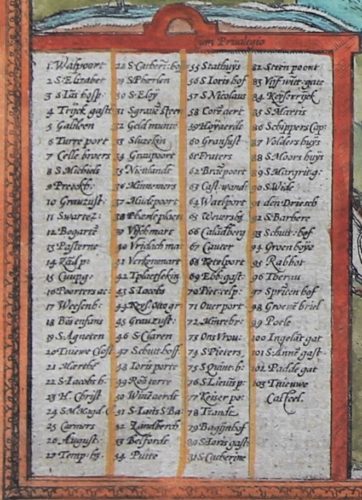 um Priuilegio
1. Walpoort
2 S. Elizabet
4 Trijck gasth
5 Gailoen
6 Turre port
7 Celle broers
8 S. Michiels
9 Preockb:
10 Grauzust:
11 Swartez:
12 Bogarte
13 Posterne
15 Cuupg:
16 Poorters ac:
17 Weesenh:
19 S. Agneten
20 Tniewe Cloſt
21 Marthe
22 S. Iacobs h:
23 H. Christ
24 S. M. Magd. C.
25 Carmers
26 August:
27 Temp: h:
29 S. Pherlen
30 S. Eloy
31 S graue steen
32 Geld munte
33 Sluzekin
34 Grauport
35 Nieulande
36 Minnemers
37 Mudepoort
39 Vyſchmart
40 Vridach ma
41 Verkenmart
42 Tplaetſekin
43 S. Iacobs
45 Grauzust:
46 S. Claren
47 Schutt: hoff.
48 Ioris porte
49 Rod terre
50 Winceerde
51 S. Ioris S. Ba
52 Landberch
53 Belforde
54 Putte
55 Stathuys
56 S. Ioris hof
57 S. Nicolaus
58 Core aert
59 Hoyaerde
60 Granfust
61 Fruters
62 Braepoort
63 Caſt. wandt
64 Watport
65 Weversh:
66 Calaberg
67 Cauter
68 Ketelport
69 Ebb: gaſt:
71 Ouerport
72 Minrebr:
73 Ons Vrou:
74 S. Pieters
75 S. Quint: h:
76 S. Lieuis p:
77 Keiser po:
79 Bagijnhof
80 S. Ioris gaſt
81 S. Catherine
82 Steen poort
83 Vijf wint: gate
84 Keyſerrijck
85 S. Martis
86 Schippers Cap:
87 Volders huys
88 S. Moors huys
89 S. Margrit g:
90 S. Wide
91 den Drieſch
92 S. Barbere
93 Schutt: hof:
94 Groen hoye
95 Rabhot
96 Tberau
97 Spriten hof
98 Groene briel
99 Poele
100 Ingelāt gat
101 S. Anne gaſt:
102 Padde gat
103 Tnieuwe
Caſteel.